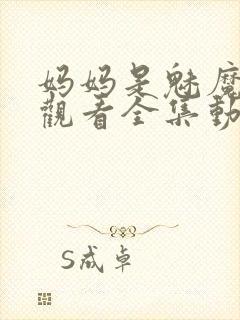 妈妈是魅魔
觀看全集動
S成卓